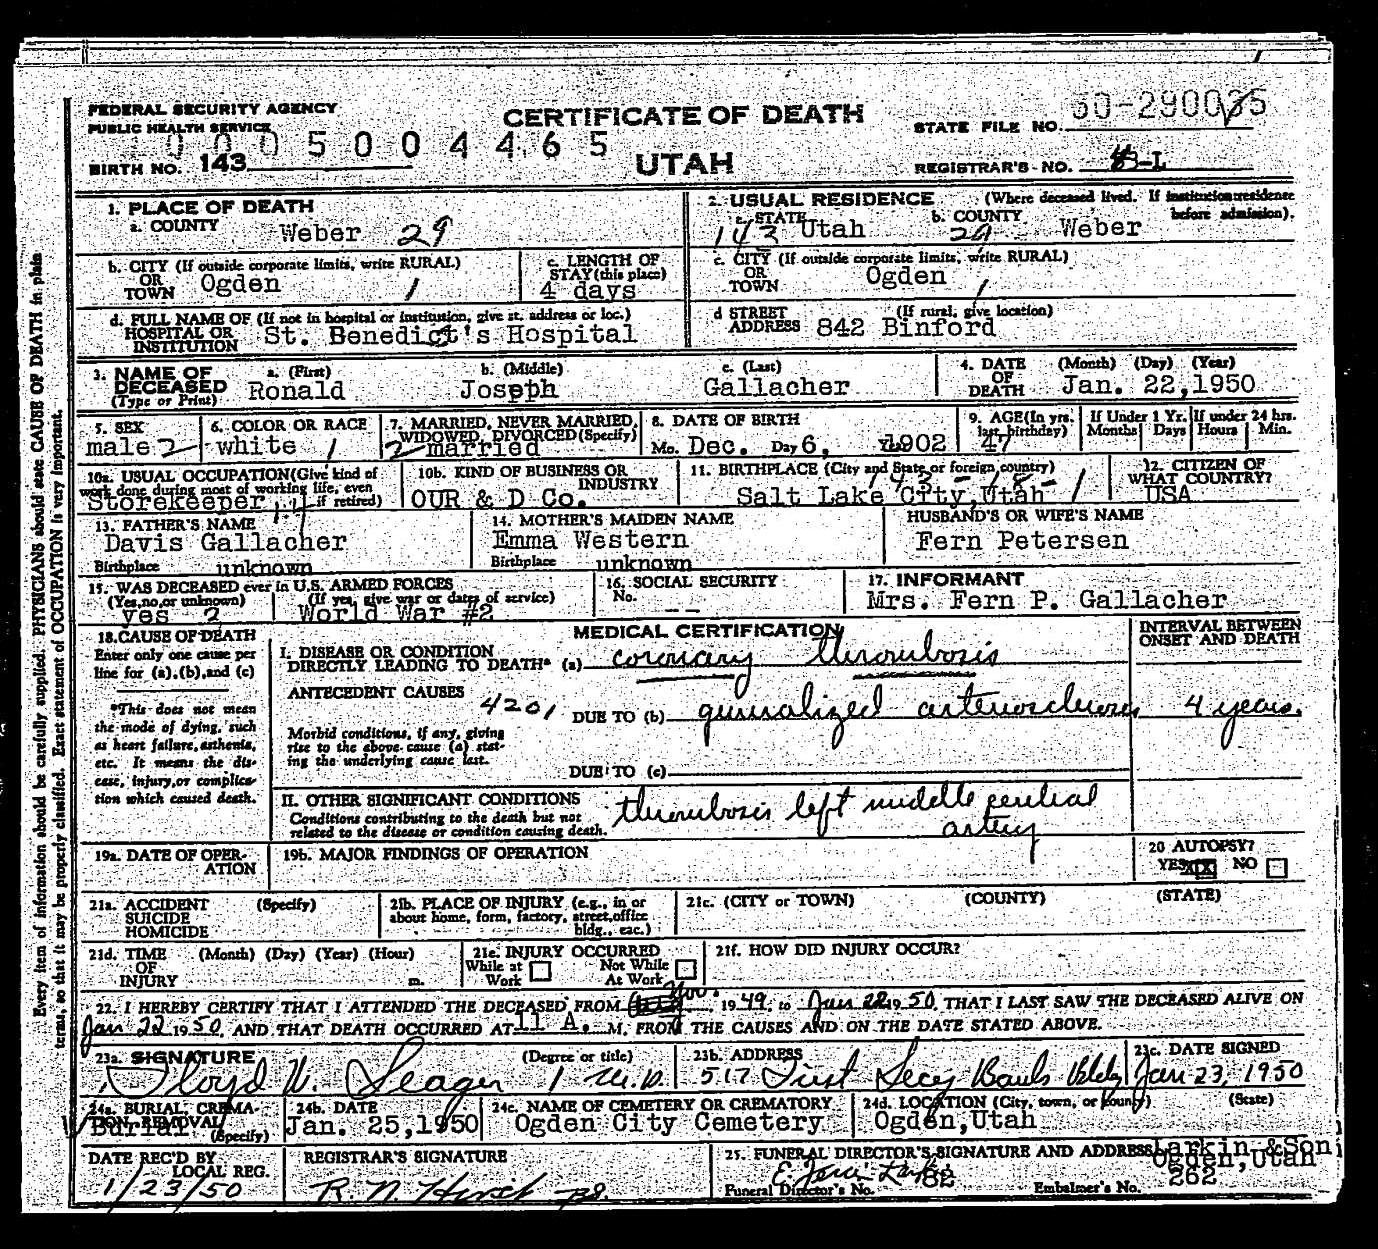 FEDERAL SECURITY AGENCY
PUBLIC HEALTH SERVICE
CERTIFICATE OF DEATH
UTAH
STATE FILE NO.
0005004465
BIRTH NO. 143
REGISTRAR'S NO.
1. PLACE OF DEATH
a. COUNTY Weber 29
2. USUAL RESIDENCE (Where deceased lived. If institution: residence before admission).
a. STATE 143 Utah b. COUNTY 29 Weber
b. CITY (If outside corporate limits, write RURAL) OR TOWN Ogden 1
c. LENGTH OF STAY (this place) 4 days
c. CITY (If outside corporate limits, write RURAL) OR TOWN Ogden 1
d. FULL NAME OF (If not in hospital or institution, give st. address or loc.) HOSPITAL OR INSTITUTION St. Benedict's Hospital
d STREET ADDRESS (If rural, give location) 842 Binford
3. NAME OF DECEASED (Type or Print) a. (First) Ronald b. (Middle) Joseph c. (Last) Gallacher
4. DATE OF DEATH (Month) (Day) (Year) Jan. 22,1950
5. SEX male 2
6. COLOR OR RACE white 1
7. MARRIED, NEVER MARRIED, WIDOWED, DIVORCED (Specify) 2 married
8. DATE OF BIRTH Mo. Dec. Day 6, 1902
9. AGE (In yrs. last birthday) 47
If Under 1 Yr. Months Days
If under 24 hrs. Hours Min.
10a. USUAL OCCUPATION (Give kind of work done during most of working life, even if retired) Storekeeper
10b. KIND OF BUSINESS OR INDUSTRY OUR & D Co.
11. BIRTHPLACE (City and State or foreign country) 143-18-1 Salt Lake City,Utah
12. CITIZEN OF WHAT COUNTRY? USA
13. FATHER'S NAME Davis Gallacher
Birthplace unknown
14. MOTHER'S MAIDEN NAME Emma Western
Birthplace unknown
HUSBAND'S OR WIFE'S NAME Fern Petersen
15. WAS DECEASED ever in U.S. ARMED FORCES
(Yes,no,or unknown) yes 2
(If yes, give war or dates of service) World War #2
16. SOCIAL SECURITY No. --
17. INFORMANT Mrs. Fern P. Gallacher
18. CAUSE OF DEATH
Enter only one cause per line for (a),(b),and (c)
*This does not mean the mode of dying, such as heart failure, asthenia, etc. It means the disease, injury,or complication which caused death.
MEDICAL CERTIFICATION
INTERVAL BETWEEN ONSET AND DEATH
I. DISEASE OR CONDITION DIRECTLY LEADING TO DEATH* (a) coronary thrombosis
ANTECEDENT CAUSES 4201
DUE TO (b) generalized arteriosclerosis 4 years.
Morbid conditions, if any, giving rise to the above cause (a) stating the underlying cause last.
DUE TO (c)
II. OTHER SIGNIFICANT CONDITIONS
Conditions contributing to the death but not related to the disease or condition causing death.
thrombosis left middle cerebral artery
19a. DATE OF OPERATION
19b. MAJOR FINDINGS OF OPERATION
20 AUTOPSY? YES XX NO
21a. ACCIDENT SUICIDE HOMICIDE (Specify)
21b. PLACE OF INJURY (e.g., in or about home, form, factory, street,office bldg., etc.)
21c. (CITY or TOWN) (COUNTY) (STATE)
21d. TIME OF INJURY (Month) (Day) (Year) (Hour) m.
21e. INJURY OCCURRED
While at Work Not While At Work
21f. HOW DID INJURY OCCUR?
22. I HEREBY CERTIFY THAT I ATTENDED THE DECEASED FROM Nov. 1949, to Jan 22 1950, THAT I LAST SAW THE DECEASED ALIVE ON
Jan 22 1950, AND THAT DEATH OCCURRED AT 11 A. M. FROM THE CAUSES AND ON THE DATE STATED ABOVE.
23a. SIGNATURE (Degree or title) Floyd H. Seager 1 M.D.
23b. ADDRESS 517 First Secy Bank Bldg
23c. DATE SIGNED Jan 23, 1950
24a. BURIAL, CREMATION, REMOVAL (Specify) Burial
24b. DATE Jan. 25,1950
24c. NAME OF CEMETERY OR CREMATORY Ogden City Cemetery
24d. LOCATION (City, town, or county) (State) Ogden,Utah
DATE REC'D BY LOCAL REG. 1/23/50
REGISTRAR'S SIGNATURE
25. FUNERAL DIRECTOR'S SIGNATURE AND ADDRESS Larkin &Son
Ogden,Utah
Funeral Director's No. 82
Embalmer's No. 262
Every item of information should be carefully supplied. PHYSICIANS should state CAUSE OF DEATH in plain
terms, so that it may be properly classified. Exact statement of OCCUPATION is very important.